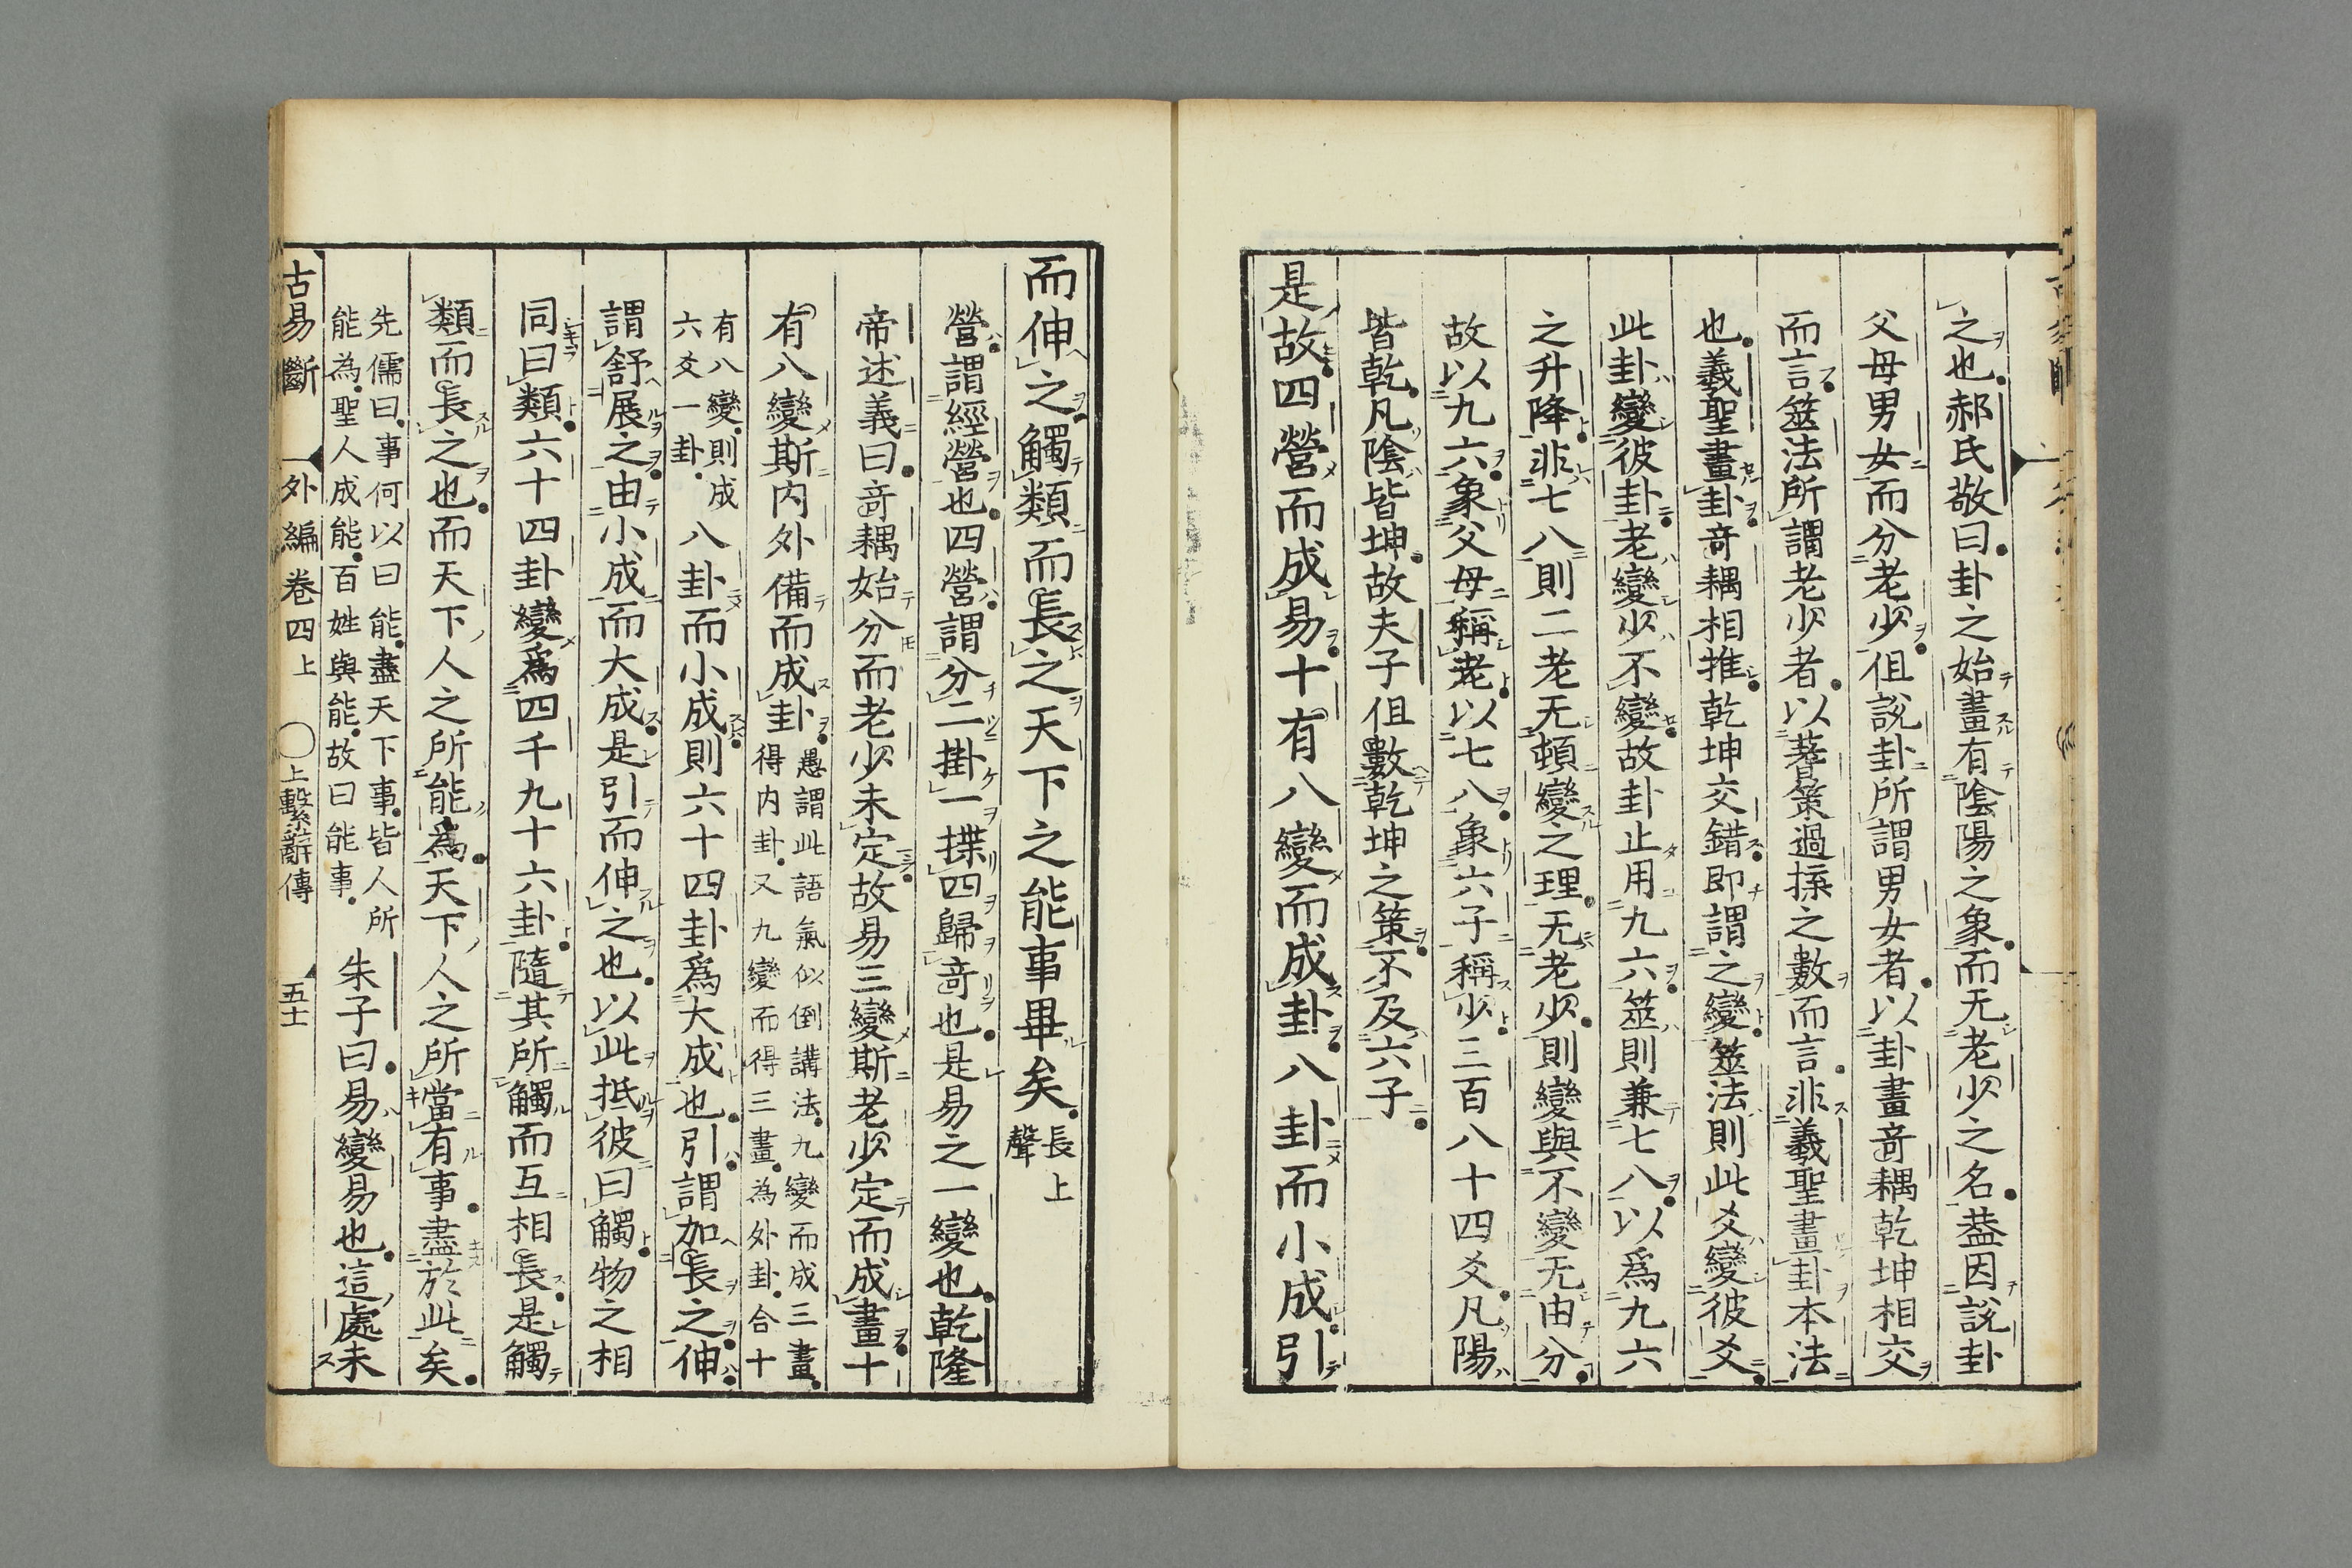 之也郝氏敬曰卦之始畫有陰陽之象而无老少之名葢因説卦
父母男女而分老少但説卦所謂男女者以卦畫竒耦乾坤相交
而言筮法所謂老少者以蓍策過揲之數而言非羲聖畫卦本法
也羲聖畫卦竒耦相推乾坤交錯即謂之變筮法則此爻變彼爻
此卦變彼卦老變少不變故卦止用九六筮則兼七八以爲九六
之升降非七八則二老无頓變之理无老少則變與不變无由分
故以九六象父母稱老以七八象六子稱少三百八十四爻凡陽
皆乾凡陰皆坤故夫子但數乾坤之策不及六子
是故四營而成易十有八變而成卦八卦而小成引
而伸之觸類而長之天下之能事畢矣長上聲
營謂經營也四營謂分二掛一揲四歸竒也是易之一變也乾隆
帝述義曰竒耦始分而老少未定故易三變斯老少定而成畫十
有八變斯内外備而成卦愚謂此語氣似倒講法九變而成三畫
得内卦又九變而得三畫為外卦合十
有八變則成
六爻一卦八卦而小成則六十四卦爲大成也引謂加長之伸
謂舒展之由小成而大成是引而伸之也以此抵彼曰觸物之相
同曰類六十四卦變爲四千九十六卦隨其所觸而互相長是觸
類而長之也而天下人之所能為天下人之所當有事盡於此矣
先儒曰事何以曰能盡天下事皆人所
能為聖人成能百姓與能故曰能事朱子曰易變易也這處未
古易斷 外編卷四上 〇上繫辭傳 五十